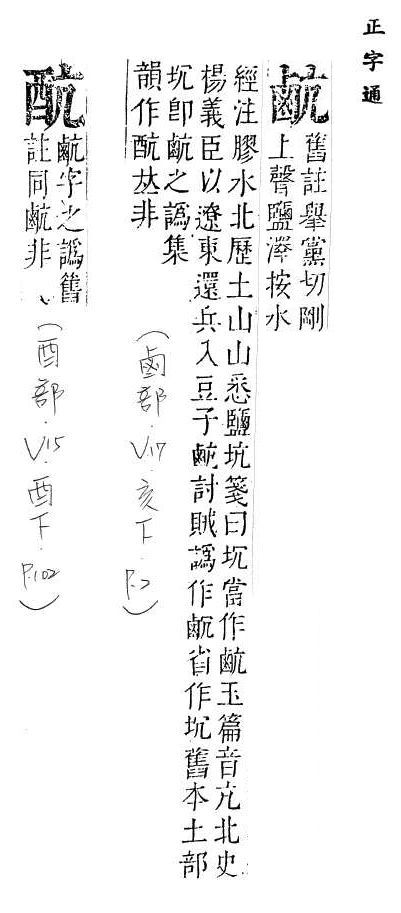 正字通
䴚 舊註舉黨切剛
上聲鹽澤按水
經注膠水北歷土山山悉鹽坑箋曰坈當作䴚玉篇音亢北史
楊義臣以遼東還兵入豆子䴚討賊譌作⿰鹵冗省作坈舊本土部
坈卽䴚之譌集
韻作⿰酉亢𠀤非
(鹵部.V17.亥下.P.2)
⿰酉亢 䴚字之譌舊
註同䴚非
(酉部.V15.酉下.P.102)